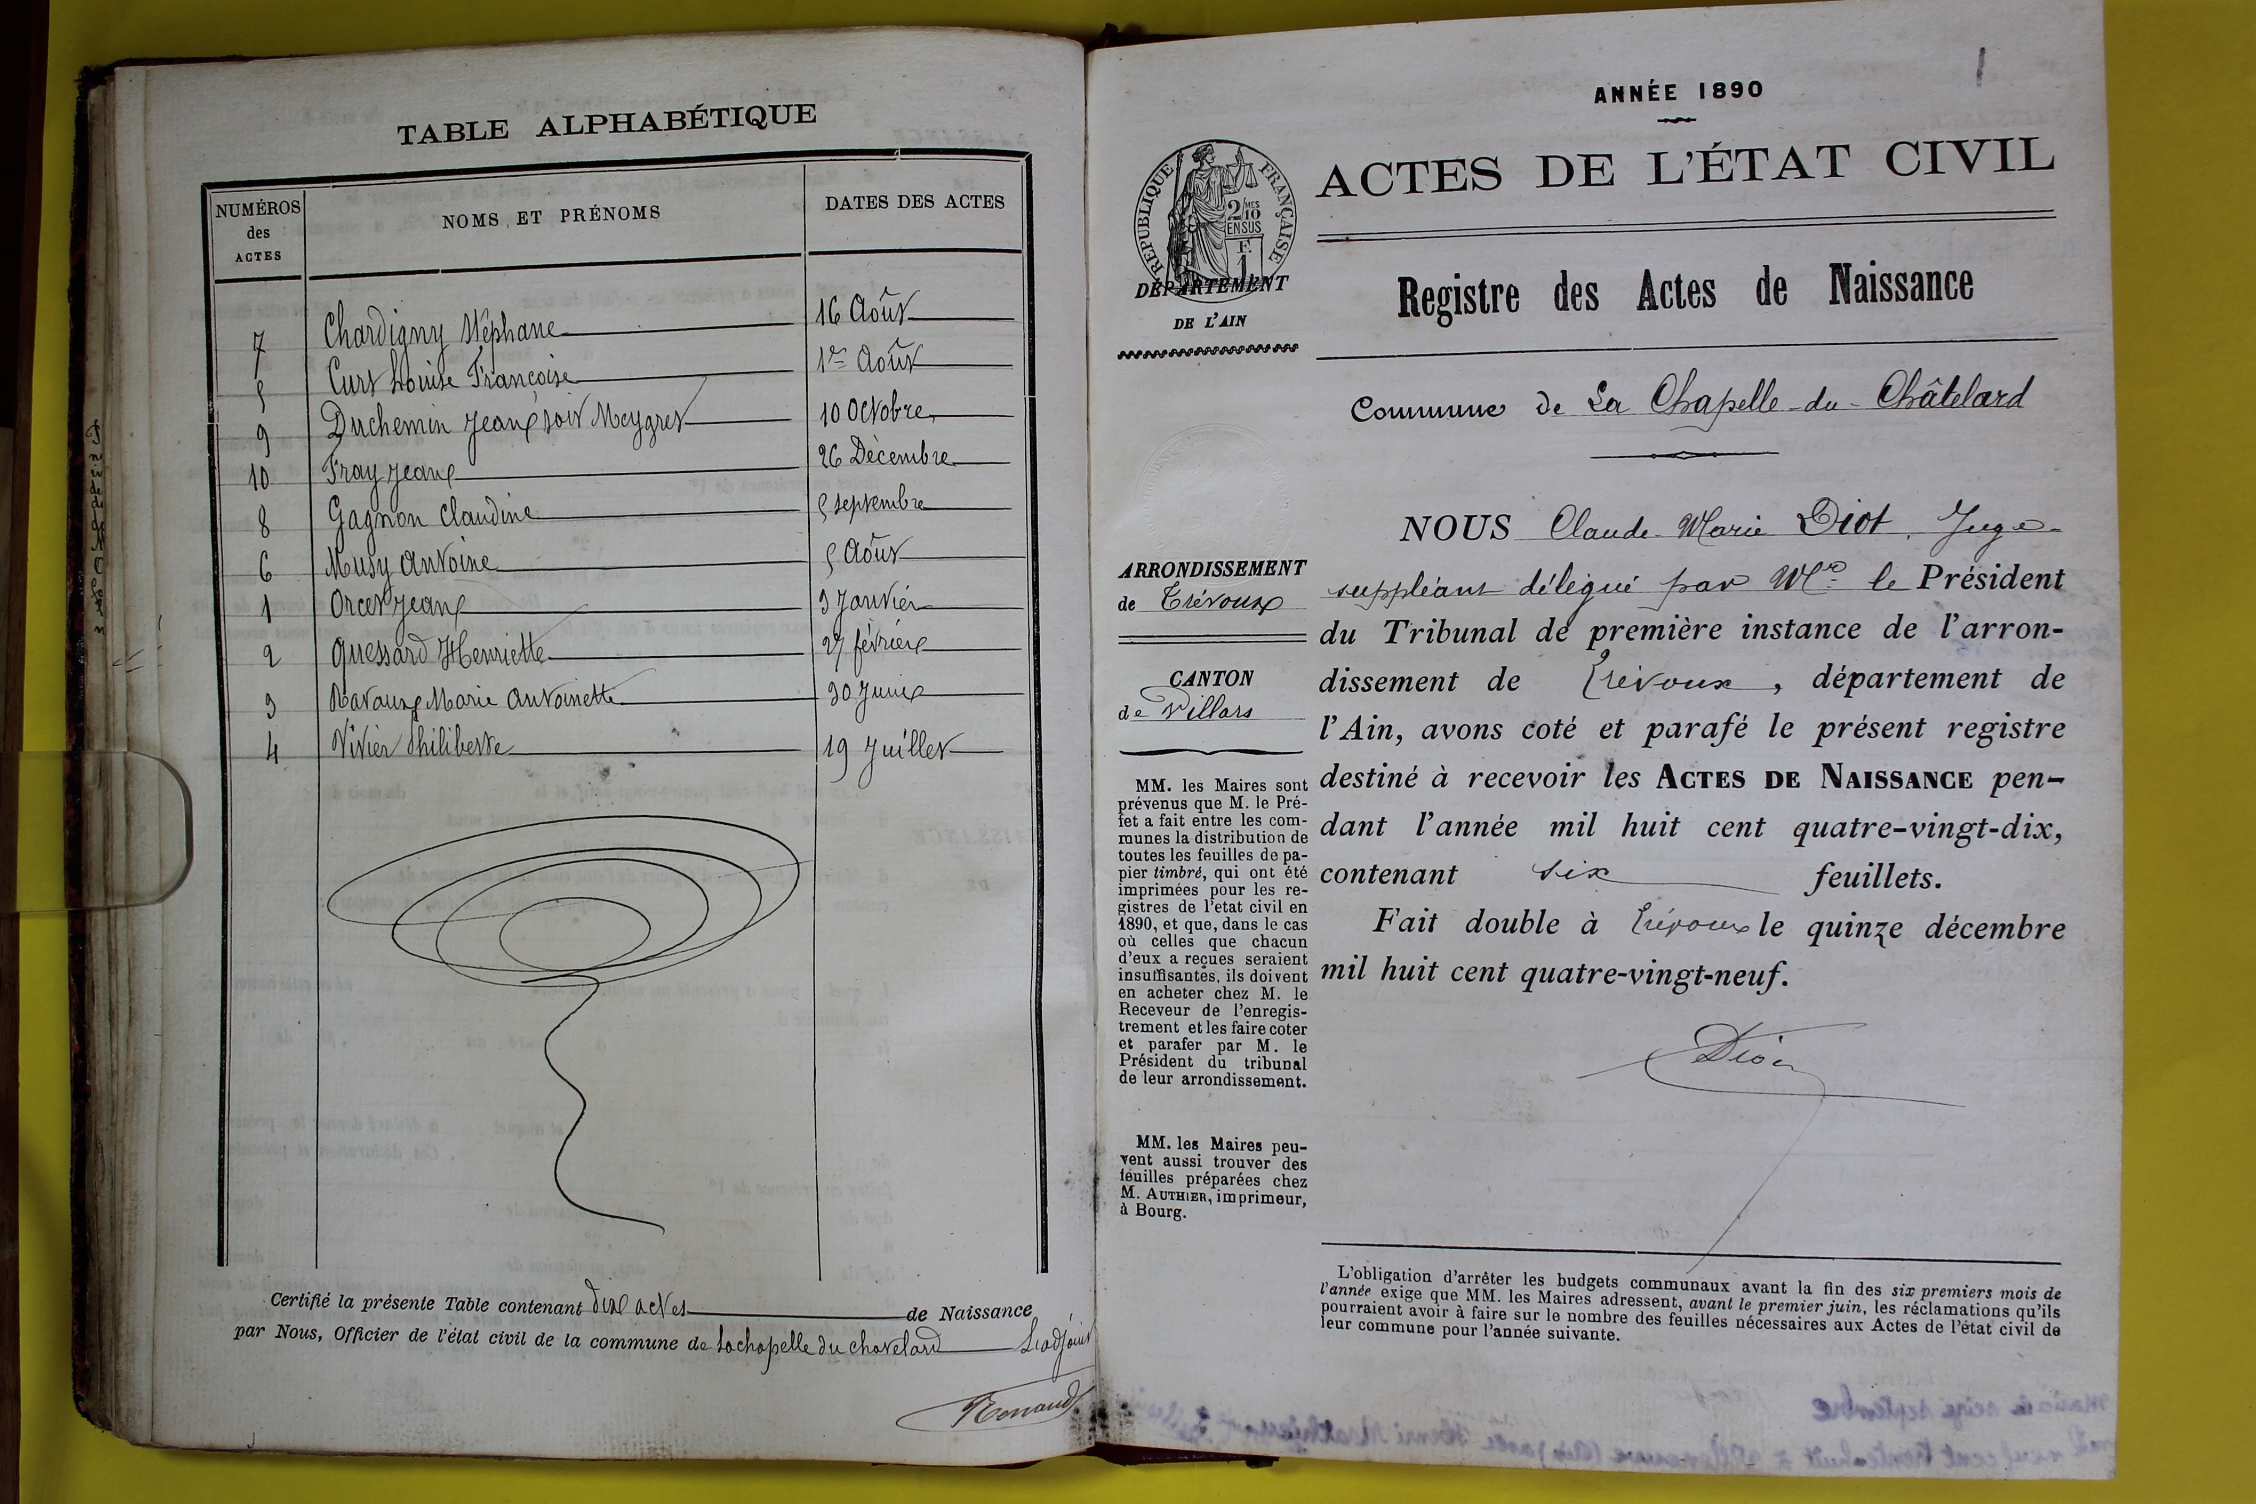 TABLE ALPHABÉTIQUE
NUMÉROS des ACTES
NOMS ET PRÉNOMS
DATES DES ACTES
7 Chardigny Stéphane 16 Août
5 Curt Louise Françoise 1er Août
9 Duchemin Jean soit Meygret 10 Octobre
10 Fray Jean 26 Décembre
8 Gagnon Claudine 5 septembre
6 Musy Antoine 5 Août
1 Orcet Jean 3 Janvier
2 Quessard Henriette 27 février
3 Ravoux Marie Antoinette 30 Juin
4 Vivier Philiberte 19 Juillet
Certifié la présente Table contenant dix actes de Naissance
par Nous, Officier de l'état civil de la commune de Lachapelle du chatelard L'adjoint
Renaud
1
ANNÉE 1890
ACTES DE L'ÉTAT CIVIL
RÉPUBLIQUE FRANÇAISE
2/10 MES
EN SUS
F.
1
DÉPARTEMENT
DE L'AIN
Registre des Actes de Naissance
Commune de La Chapelle-du-Châtelard
ARRONDISSEMENT
de Trévoux
CANTON
de Villars
MM. les Maires sont
prévenus que M. le Pré-
fet a fait entre les com-
munes la distribution de
toutes les feuilles de pa-
pier timbré, qui ont été
imprimées pour les re-
gistres de l'etat civil en
1890, et que, dans le cas
où celles que chacun
d'eux a reçues seraient
insuffisantes, ils doivent
en acheter chez M. le
Receveur de l'enregis-
trement et les faire coter
et parafer par M. le
Président du tribunal
de leur arrondissement.
MM. les Maires peu-
vent aussi trouver des
feuilles préparées chez
M. AUTHIER, imprimeur,
à Bourg.
NOUS Claude-Marie Diot, Juge
suppléant délégué par Mr le Président
du Tribunal de première instance de l'arron-
dissement de Trévoux, département de
l'Ain, avons coté et parafé le présent registre
destiné à recevoir les ACTES DE NAISSANCE pen-
dant l'année mil huit cent quatre-vingt-dix,
contenant six feuillets.
Fait double à Trévoux le quinze décembre
mil huit cent quatre-vingt-neuf.
Diot
L'obligation d'arrêter les budgets communaux avant la fin des six premiers mois de
l'année exige que MM. les Maires adressent, avant le premier juin, les réclamations qu'ils
pourraient avoir à faire sur le nombre des feuilles nécessaires aux Actes de l'état civil de
leur commune pour l'année suivante.